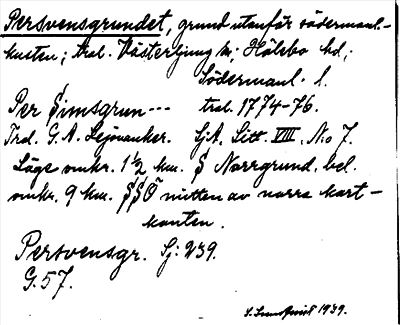 Persvensgrundet, grund utanför södermanl.-
kusten; tral. Västerljung sn; Hölebo hd;
Södermanl. l.
Per Simsgrun--- tral. 1774-76.
Trol. G. A. Lejonanker. SjA, Litt. VIII, No 7.
Läge omkr. 1 1/2 km. S Norrgrund, bel.
omkr. 9 km. SSO mitten av norra kart-
kanten.
Persvensgr. Sj: 239.
G. 57.
1939.